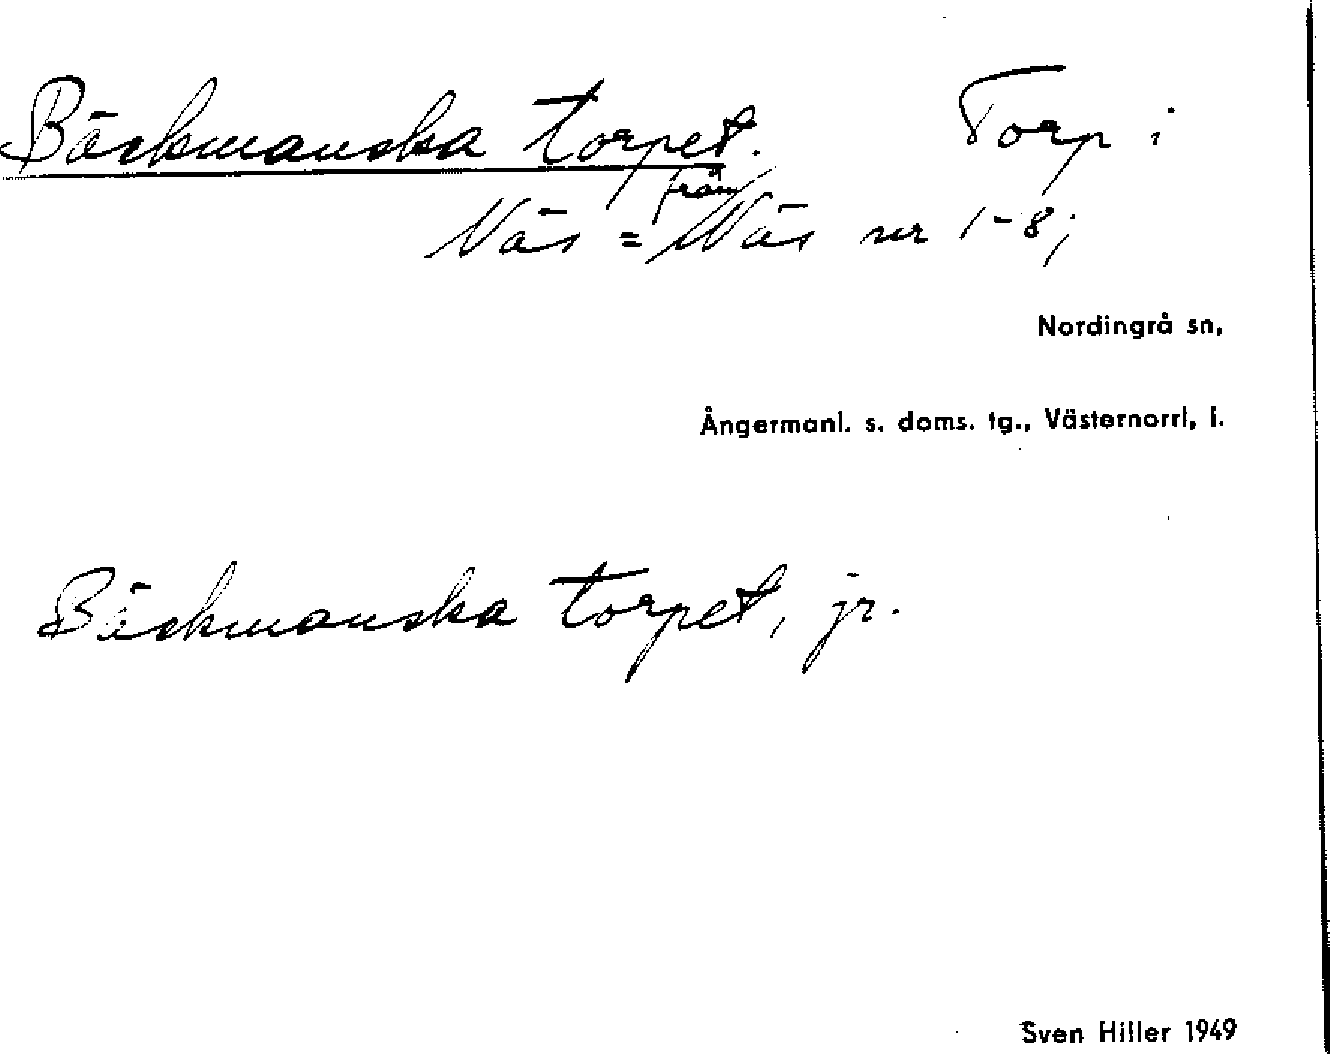 Bäckmanska torpet. Torp i
från
Näs = Näs nr 1-8;
Nordingrå sn,
Ångermanl. s. doms. tg., Västernorrl, l.
Bäckmanska torpet, jr.
Sven Hiller 1949